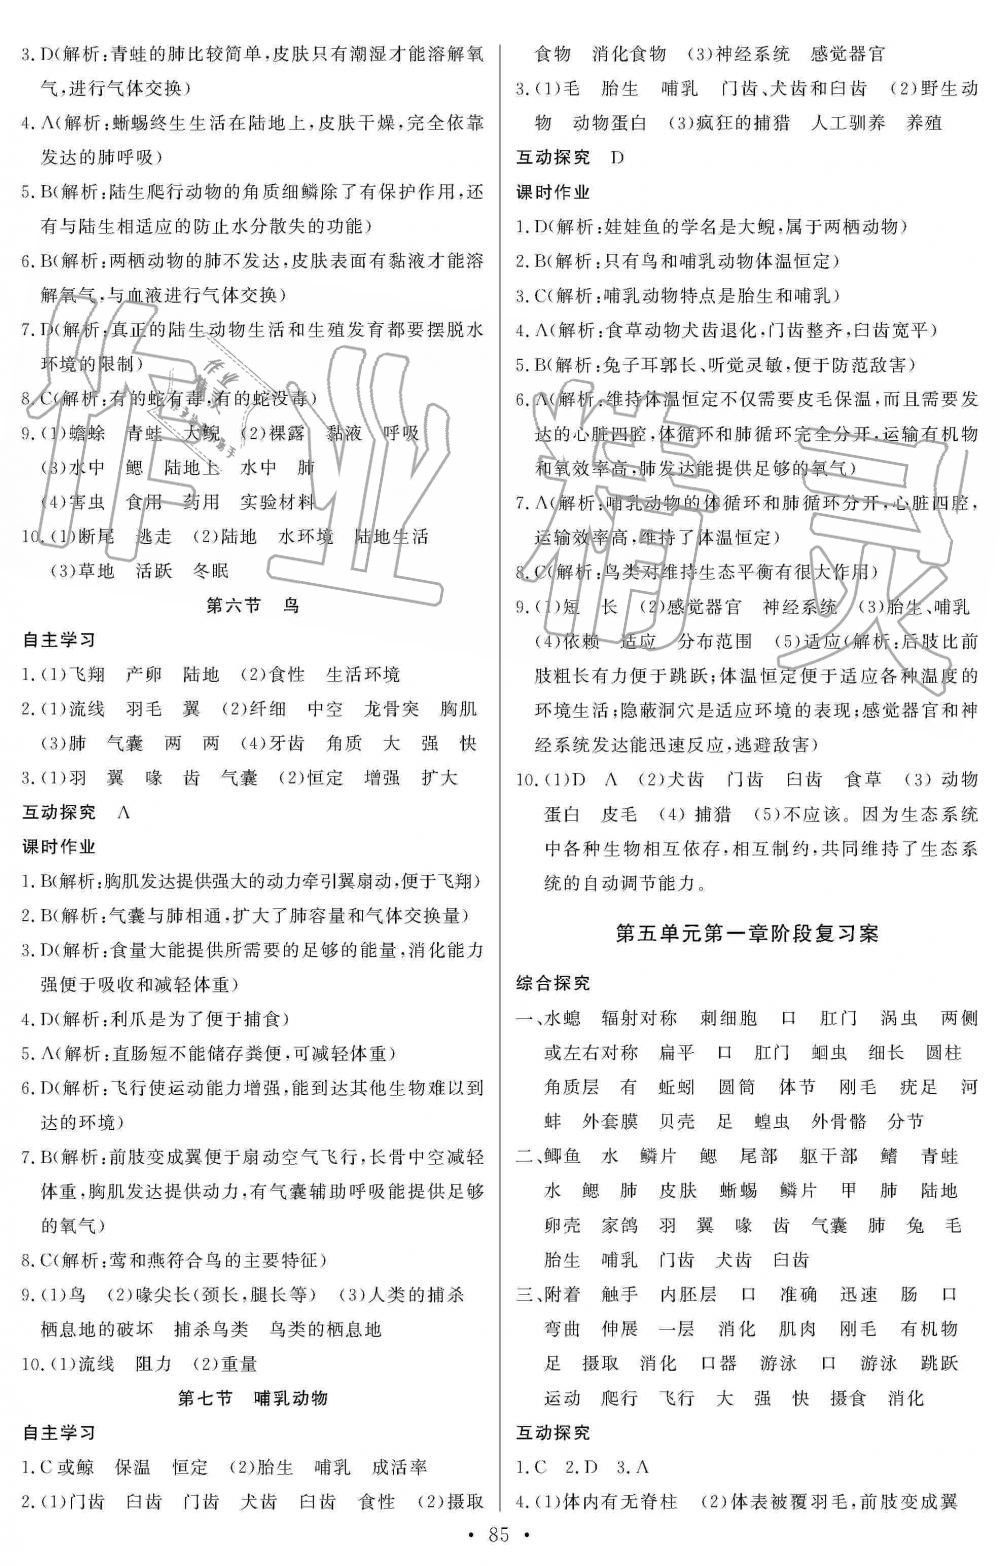 3. D(解析:青蛙的肺比较简单,皮肤只有潮湿才能溶解氧
气,进行气体交换)
4. A(解析:蜥蜴终生生活在陆地上,皮肤干燥,完全依靠
发达的肺呼吸)
5. B(解析:陆生爬行动物的角质细鳞除了有保护作用,还
有与陆生相适应的防止水分散失的功能)
6. B(解析:两栖动物的肺不发达,皮肤表面有黏液才能溶
解氧气,与血液进行气体交换)
7. D(解析:真正的陆生动物生活和生殖发育都要摆脱水
环境的限制)
8. C(解析:有的蛇有毒,有的蛇没毒)
9. (1)蟾蜍 青蛙 大鲵 (2)裸露 黏液 呼吸
(3)水中 鳃 陆地上 水中 肺
(4)害虫 食用 药用 实验材料
10. (1)断尾 逃走 (2)陆地 水环境 陆地生活
(3)草地 活跃 冬眠
第六节 鸟
自主学习
1. (1)飞翔 产卵 陆地 (2)食性 生活环境
2. (1)流线 羽毛 翼 (2)纤细 中空 龙骨突 胸肌
(3)肺 气囊 两 两 (4)牙齿 角质 大 强 快
3. (1)羽 翼 喙 齿 气囊 (2)恒定 增强 扩大
互动探究 A
课时作业
1. B(解析:胸肌发达提供强大的动力牵引翼扇动,便于飞翔)
2. B(解析:气囊与肺相通,扩大了肺容量和气体交换量)
3. D(解析:食量大能提供所需要的足够的能量,消化能力
强便于吸收和减轻体重)
4. D(解析:利爪是为了便于捕食)
5. A(解析:直肠短不能储存粪便,可减轻体重)
6. D(解析:飞行使运动能力增强,能到达其他生物难以到
达的环境)
7. B(解析:前肢变成翼便于扇动空气飞行,长骨中空减轻
体重,胸肌发达提供动力,有气囊辅助呼吸能提供足够
的氧气)
8. C(解析:莺和燕符合鸟的主要特征)
9. (1)鸟 (2)喙尖长(颈长,腿长等) (3)人类的捕杀
栖息地的破坏 捕杀鸟类 鸟类的栖息地
10. (1)流线 阻力 (2)重量
第七节 哺乳动物
自主学习
1. C或鲸 保温 恒定 (2)胎生 哺乳 成活率
2. (1)门齿 臼齿 门齿 犬齿 臼齿 食性 (2)摄取
食物 消化食物 (3)神经系统 感觉器官
3. (1)毛 胎生 哺乳 门齿、犬齿和臼齿 (2)野生动
物 动物蛋白 (3)疯狂的捕猎 人工驯养 养殖
互动探究 D
课时作业
1. D(解析:娃娃鱼的学名是大鲵,属于两栖动物)
2. B(解析:只有鸟和哺乳动物体温恒定)
3. C(解析:哺乳动物特点是胎生和哺乳)
4. A(解析:食草动物犬齿退化,门齿整齐,臼齿宽平)
5. B(解析:兔子耳郭长、听觉灵敏,便于防范敌害)
6. A(解析:维持体温恒定不仅需要皮毛保温,而且需要发
达的心脏四腔,体循环和肺循环完全分开,运输有机物
和氧效率高,肺发达能提供足够的氧气)
7. A(解析:哺乳动物的体循环和肺循环分开,心脏四腔,
运输效率高,维持了体温恒定)
8. C(解析:鸟类对维持生态平衡有很大作用)
9. (1)短 长 (2)感觉器官 神经系统 (3)胎生、哺乳
(4)依赖 适应 分布范围 (5)适应(解析:后肢比前
肢粗长有力便于跳跃;体温恒定便于适应各种温度的
环境生活;隐蔽洞穴是适应环境的表现;感觉器官和神
经系统发达能迅速反应,逃避敌害)
10. (1)D A (2)犬齿 门齿 臼齿 食草 (3) 动物
蛋白 皮毛 (4) 捕猎 (5)不应该。因为生态系统
中各种生物相互依存,相互制约,共同维持了生态系
统的自动调节能力。
第五单元第一章阶段复习案
综合探究
一、水螅 辐射对称 刺细胞 口 肛门 涡虫 两侧
或左右对称 扁平 口 肛门 蛔虫 细长 圆柱
角质层 有 蚯蚓 圆筒 体节 刚毛 疣足 河
蚌 外套膜 贝壳 足 蝗虫 外骨骼 分节
二、鲫鱼 水 鳞片 鳃 尾部 躯干部 鳍 青蛙
水 鳃 肺 皮肤 蜥蜴 鳞片 甲 肺 陆地
卵壳 家鸽 羽 翼 喙 齿 气囊 肺 兔 毛
胎生 哺乳 门齿 犬齿 臼齿
三、附着 触手 内胚层 口 准确 迅速 肠 口
弯曲 伸展 一层 消化 肌肉 刚毛 有机物
足 摄取 消化 口器 游泳 口 游泳 跳跃
运动 爬行 飞行 大 强 快 摄食 消化
互动探究
1. C 2. D 3. A
4. (1)体内有无脊柱 (2)体表被覆羽毛,前肢变成翼
• 85 •
作业精灵